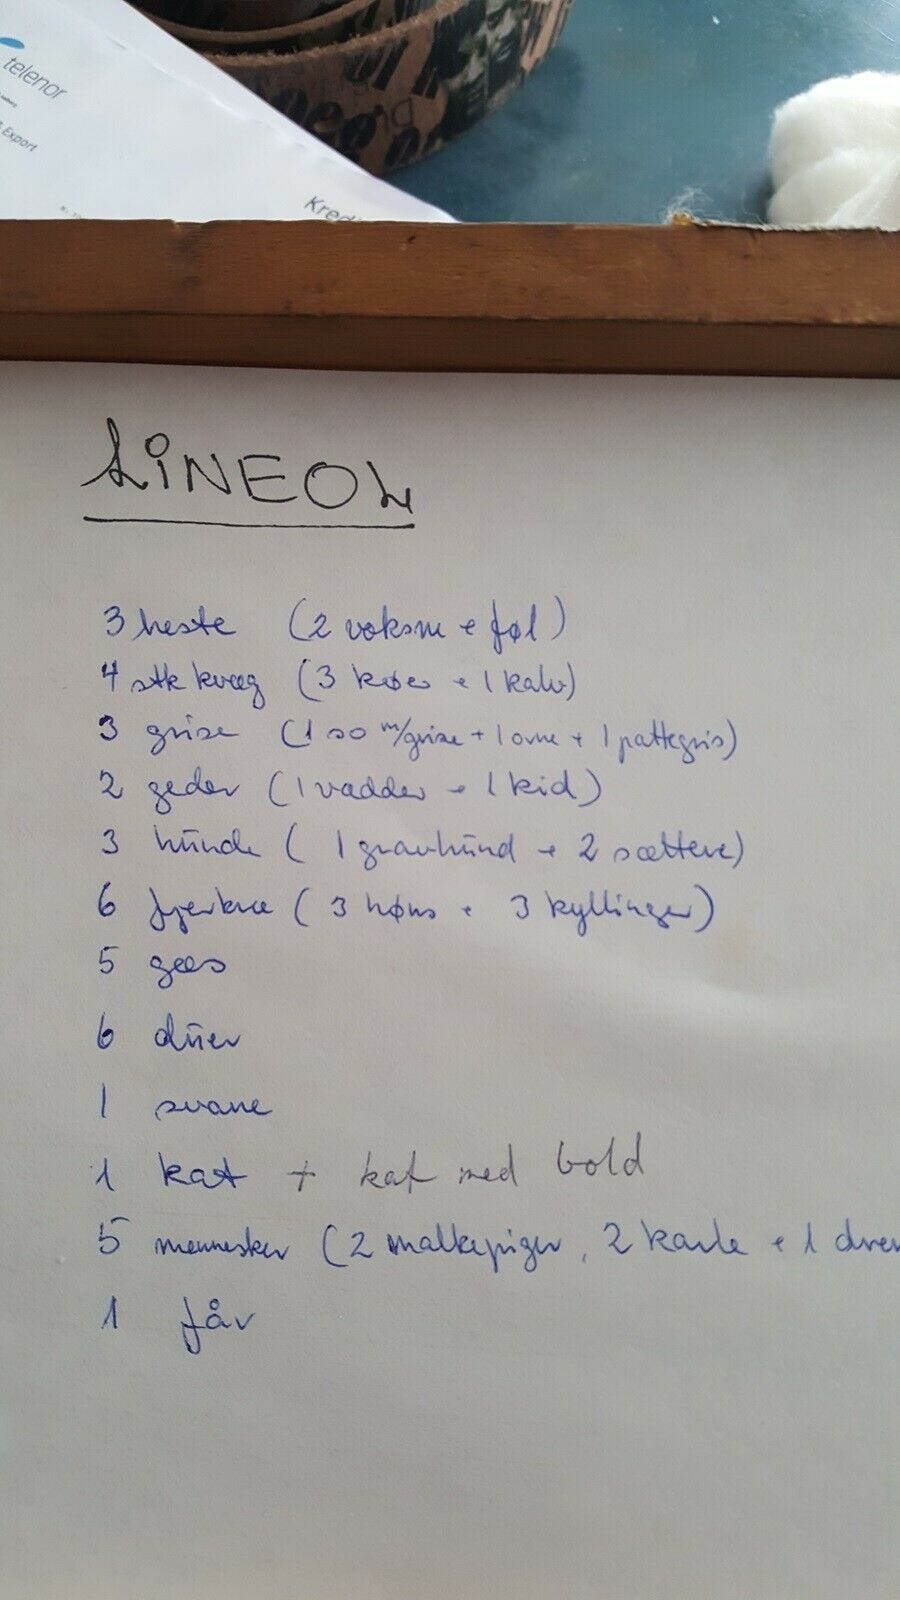 telenor
Export
Kredi
LINEOL
3 heste (2 voksne + føl)
4 stk kvæg (3 køer + 1 kalv)
3 grise (1 so m/grise + 1 orne + 1 pattegris)
2 geder (1 vædder + 1 kid)
3 hunde (1 gravhund + 2 sættere)
6 fjerkræ (3 høns + 3 kyllinger)
5 gæs
6 duer
1 svane
1 kat + kat med bold
5 mennesker (2 malkepiger, 2 karle + 1 dren
1 får